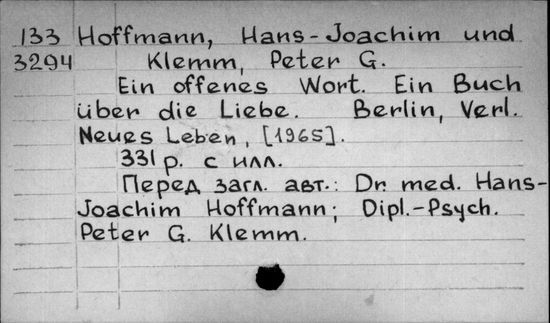 133 Hoffmann, Hans-Joachim und
3294 Klemm, Peter G.
Ein offenes Wort. Ein Buch
über die Liebe. Berlin, Verl.
Neues Leben, [1965].
331 p. с илл.
Перед загл. авт.: Dr. med. Hans-
Joachim Hoffmann; Dipl.-Psych.
Peter G. Klemm.